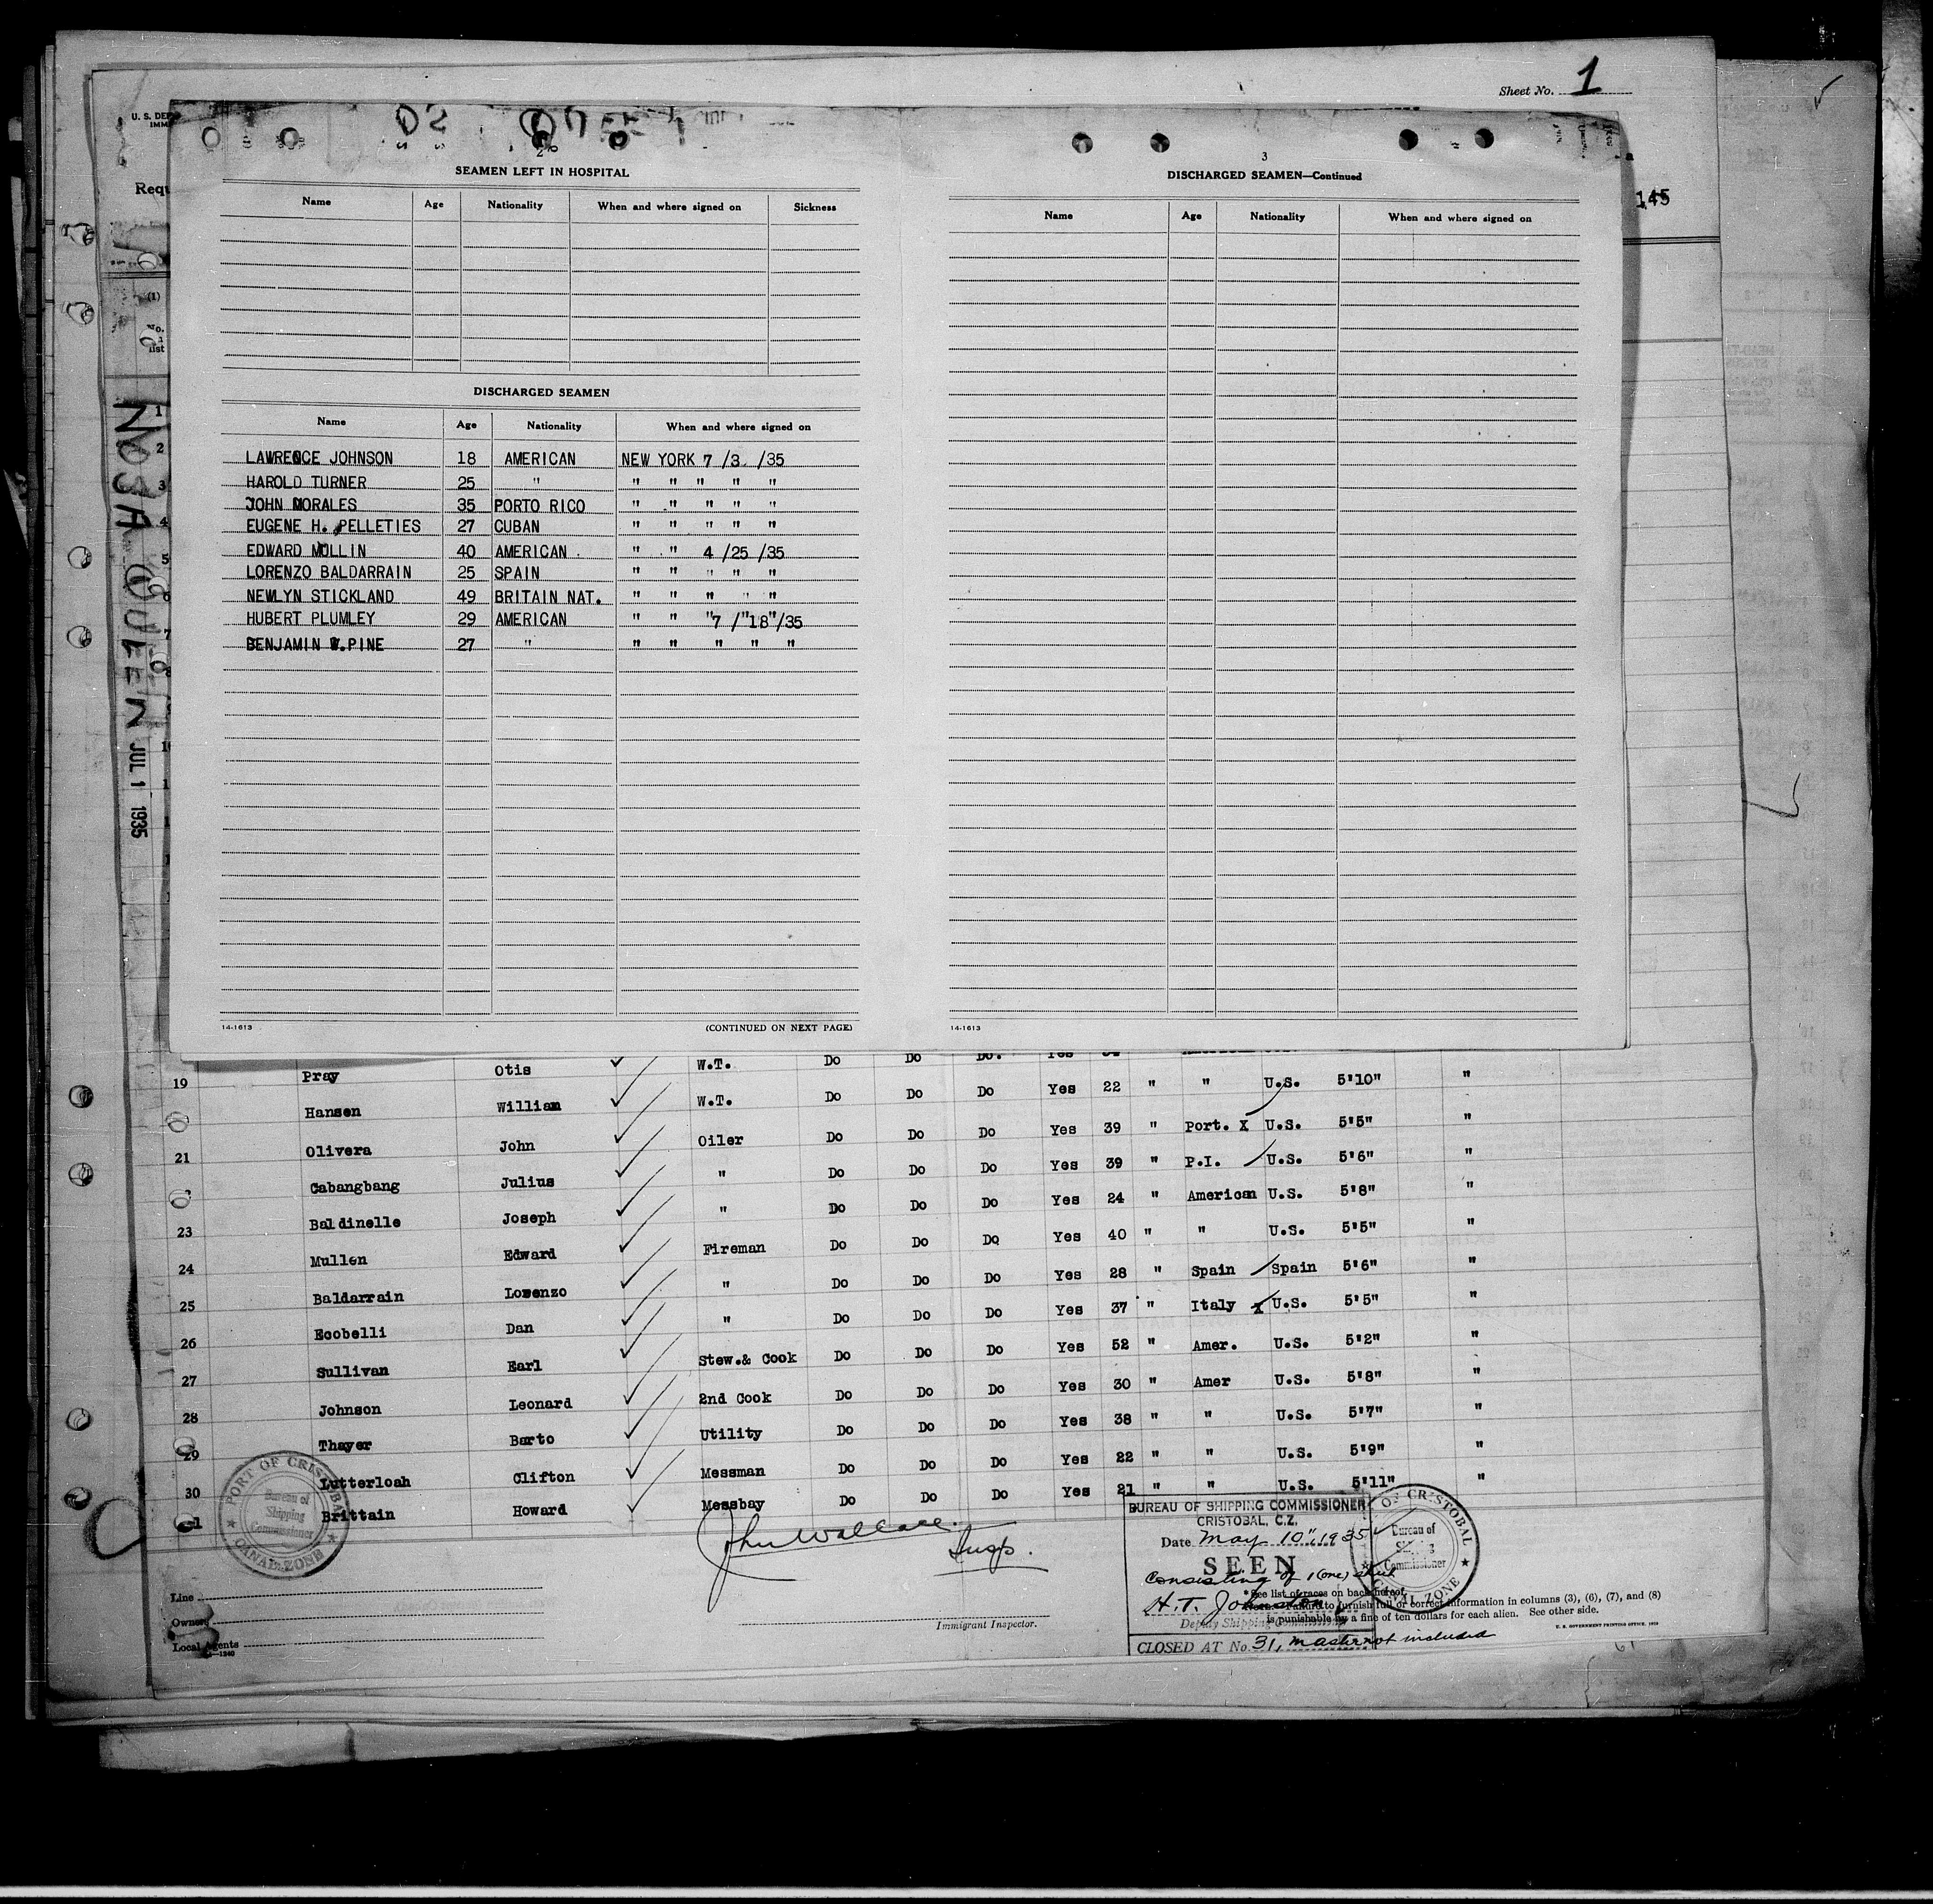 Sheet No. 1
U. S. DEP
IMM
Requ
145
2
SEAMEN LEFT IN HOSPITAL
Name Age Nationality When and where signed on Sickness
DISCHARGED SEAMEN
Name Age Nationality When and where signed on
LAWRENCE JOHNSON 18 AMERICAN NEW YORK 7 /3 /35
HAROLD TURNER 25 " " " " " "
JOHN MORALES 35 PORTO RICO " " " " "
EUGENE H. PELLETIES 27 CUBAN " " " " "
EDWARD MULLIN 40 AMERICAN " " 4 /25 /35
LORENZO BALDARRAIN 25 SPAIN " " " " "
NEWLYN STICKLAND 49 BRITAIN NAT. " " " " "
HUBERT PLUMLEY 29 AMERICAN " " "7 /"18"/35
BENJAMIN W.PINE 27 " " " " " "
14-1613 (CONTINUED ON NEXT PAGE)
3
DISCHARGED SEAMEN—Continued
Name Age Nationality When and where signed on
14-1613
NOSA QUEEN JUL 1 1935
19 Pray Otis W.T. Do Do Do. Yes
Hansen William W.T. Do Do Do Yes 22 " " U.S. 5'10" "
21 Olivera John Oiler Do Do Do Yes 39 " Port. X U.S. 5'5" "
Cabangbang Julius " Do Do Do Yes 39 " P.I. U.S. 5'6" "
23 Baldinelle Joseph " Do Do Do Yes 24 " American U.S. 5'8" "
24 Mullen Edward Fireman Do Do Do Yes 40 " " U.S. 5'5" "
25 Baldarrain Lorenzo " Do Do Do Yes 28 " Spain Spain 5'6" "
26 Ecobelli Dan " Do Do Do Yes 37 " Italy X U.S. 5'5" "
27 Sullivan Earl Stew.& Cook Do Do Do Yes 52 " Amer. U.S. 5'2" "
28 Johnson Leonard 2nd Cook Do Do Do Yes 30 " Amer U.S. 5'8" "
29 Thayer Barto Utility Do Do Do Yes 38 " " U.S. 5'7" "
30 Lutterloah Clifton Messman Do Do Do Yes 22 " " U.S. 5'9" "
Brittain Howard Messbay Do Do Do Yes 21 " " U.S. 5'11" "
PORT OF CRISTOBAL
Bureau of
Shipping
Commissioner
CANAL ZONE
John Wallace
Insp.
Immigrant Inspector.
Line
Owners
Local Agents
BUREAU OF SHIPPING COMMISSIONER
CRISTOBAL, C.Z.
Date May 10", 1935
SEEN
Consisting of 1 (one) sheet
H. T. Johnston
Deputy Shipping Commissioner
CLOSED AT No. 31, master not included
OF CRISTOBAL
Bureau of
Commissioner
CANAL ZONE
*See list of races on back hereof.
Failure to furnish full or correct information in columns (3), (6), (7), and (8)
is punishable by a fine of ten dollars for each alien. See other side.
U. S. GOVERNMENT PRINTING OFFICE